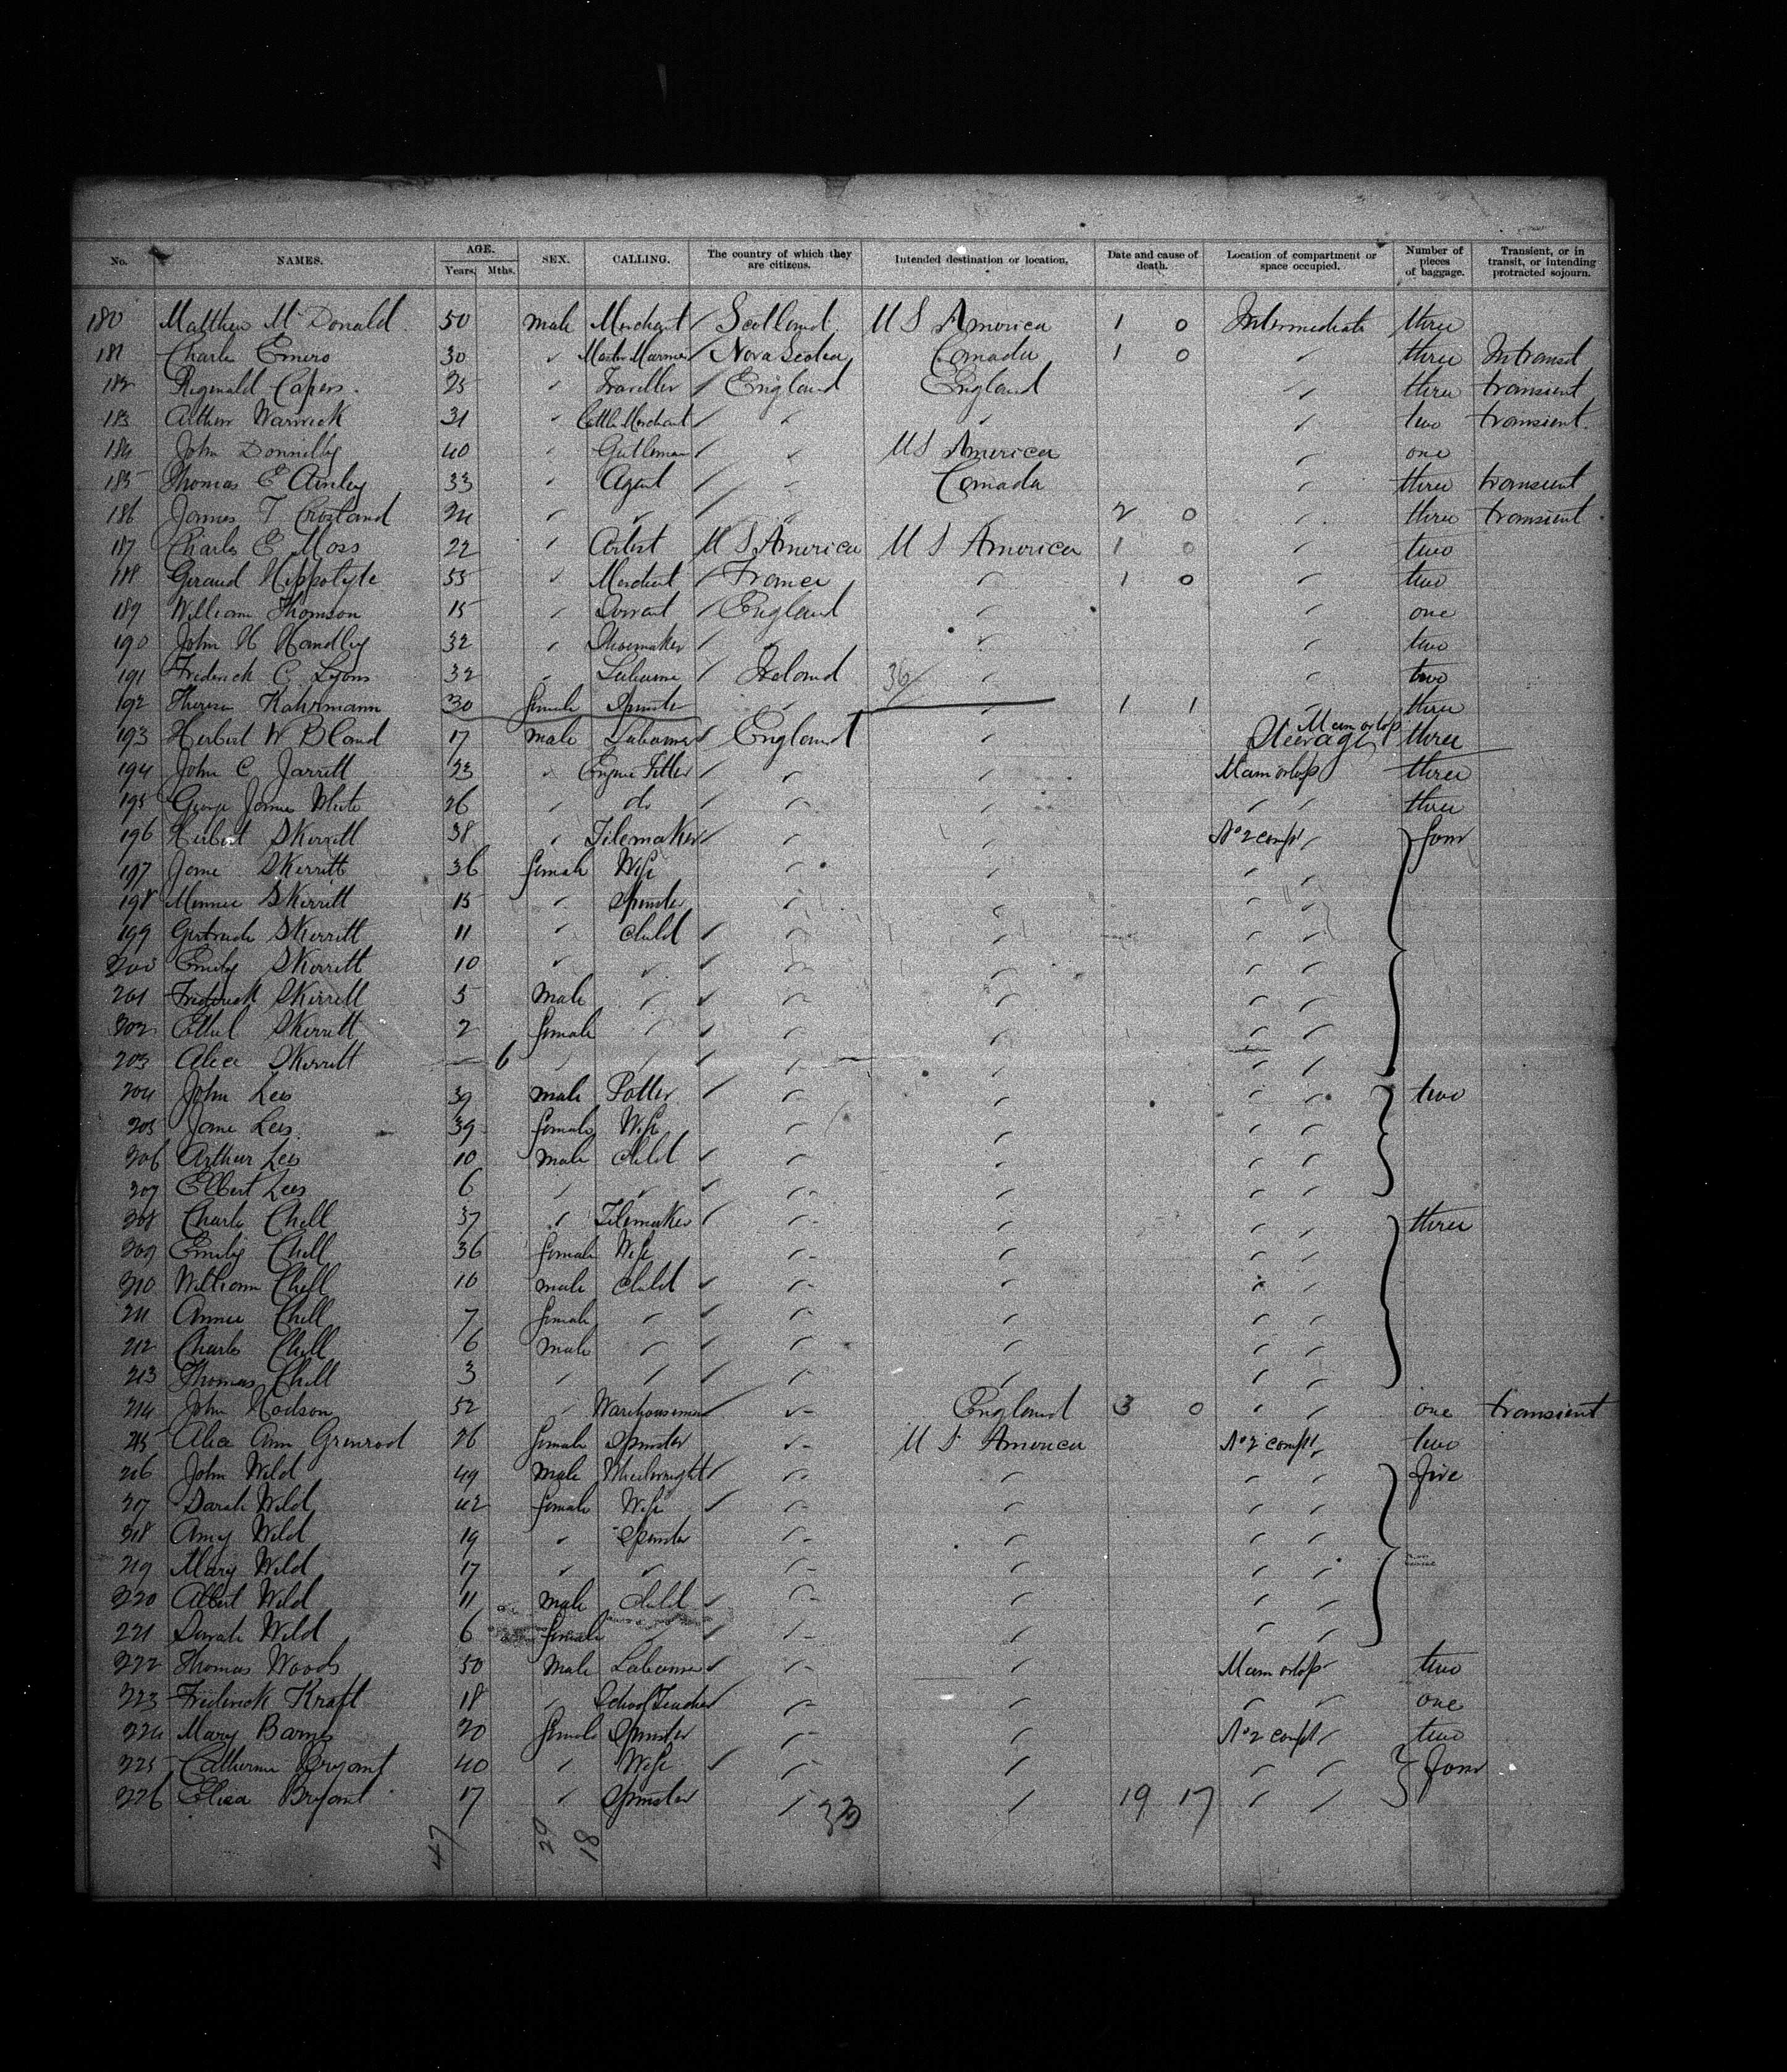 No. NAMES. AGE. Years. Mths. SEX. CALLING. The country of which they are citizens. Intended destination or location. Date and cause of death. Location of compartment or space occupied. Number of pieces of baggage. Transient, or in transit, or intending protracted sojourn.
180 Matthew McDonald 50 male Merchant Scotland U S America 1 0 Intermediate three
181 Charles Emero 30 " Master Mariner Nova Scotia Canada 1 0 " three Intransit
182 Reginald Capers 25 " Traveller England England " three transient
183 Arthur Warwick 31 " Cattle Merchant " " " two transient
184 John Donnilly 40 " Gentleman " U S America " one
185 Thomas E Ainley 33 " Agent " Canada " three transient
186 James T Crosland 24 " " " " 2 0 " three transient
187 Charles E Moss 22 " Artist U S America U S America 1 0 " two
188 Geraud Hippolyte 55 " Merchant France " 1 0 " two
189 William Thomson 15 " Servant England " " one
190 John H Handley 32 " Shoemaker " " " two
191 Frederick C Lyons 32 " Labourer Ireland 36 " " two
192 Theresa Kahrmann 30 female Spinster " " 1 1 " three
193 Herbert W Bland 17 male Labourer England " Steerage Main orlop three
194 John C Jarrett 23 " Engine Fitter " " Main orlop three
195 George James White 26 " do " " " " three
196 Herbert Skerrett 38 " Tilemaker " " No 2 compt " four
197 Jane Skerritt 36 female Wife " " " "
198 Minnie Skerritt 15 " Spinster " " " "
199 Gertrude Skerritt 11 " child " " " "
200 Emily Skerritt 10 " " " " " "
201 Frederick Skerritt 5 male " " " " "
202 Ethel Skerritt 2 female " " " " "
203 Alice Skerritt — 6 " " " " " "
204 John Lees 39 male Potter " " " " two
205 Jane Lees 39 female Wife " " " "
206 Arthur Lees 10 male child " " " "
207 Elbert Lees 6 " " " " " "
208 Charles Chell 37 " Tilemaker " " " " three
209 Emily Chell 36 female Wife " " " "
210 William Chell 10 male child " " " "
211 Annie Chell 7 female " " " " "
212 Charles Chell 6 male " " " " "
213 Thomas Chell 3 " " " " " "
214 John Hodson 52 " Warehouseman " England 3 0 " " one transient
215 Alice Ann Grimrod 26 female Spinster " U S America No 2 compt " two
216 John Wild 49 male Wheelwright " " " " five
217 Sarah Wild 42 female Wife " " " "
218 Amy Wild 19 " Spinster " " " "
219 Mary Wild 17 " " " " " "
220 Albert Wild 11 male child " " " "
221 Sarah Wild 6 female " " " " "
222 Thomas Woods 50 male Labourer " " Main orlop two
223 Frederick Kraft 18 " School Teacher " " " " one
224 Mary Barnes 20 female Spinster " " No 2 compt " two
225 Catherine Bryant 40 " Wife " " " " four
226 Eliza Bryant 17 " Spinster " 33 " 19 17 " "
47 29 18